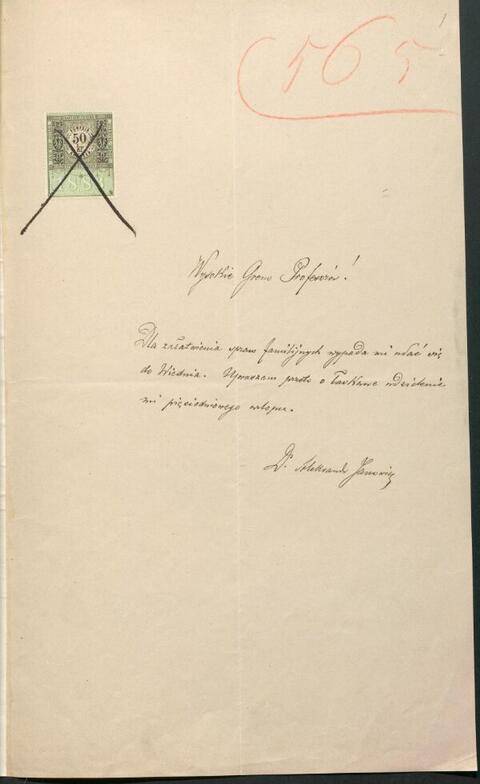 1
565
50
kr
1883
Wysokie Grono Profesorów!
Dla załatwienia spraw familijnych wypada mi udać się
do Wiednia. Upraszam przeto o łaskawe udzielenie
mi pięciodniowego urlopu.
Dr. Aleksander Janowicz